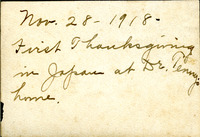 Nov. 28 - 1918 -
First Thanksgiving
in Japan at Dr.
home.